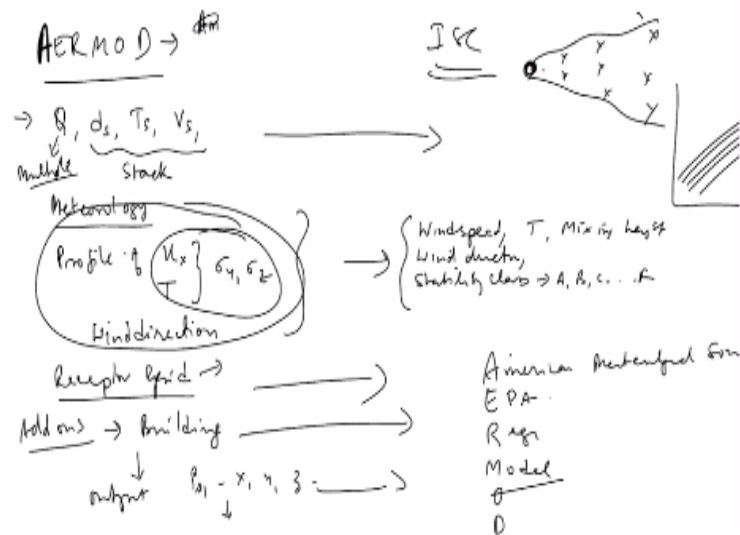 AERMOD →
ISC
→ Q, ds, Ts, Vs,
Multiple
Stack
Meteorology
Profile of ux } σy, σz
T
Winddirection
Windspeed, T, Mixing height
Wind directn,
Stability Class → A, B, C ... F
Receptor Grid →
Add ons → Building
output
x, y, z
American
EPA
Model
D